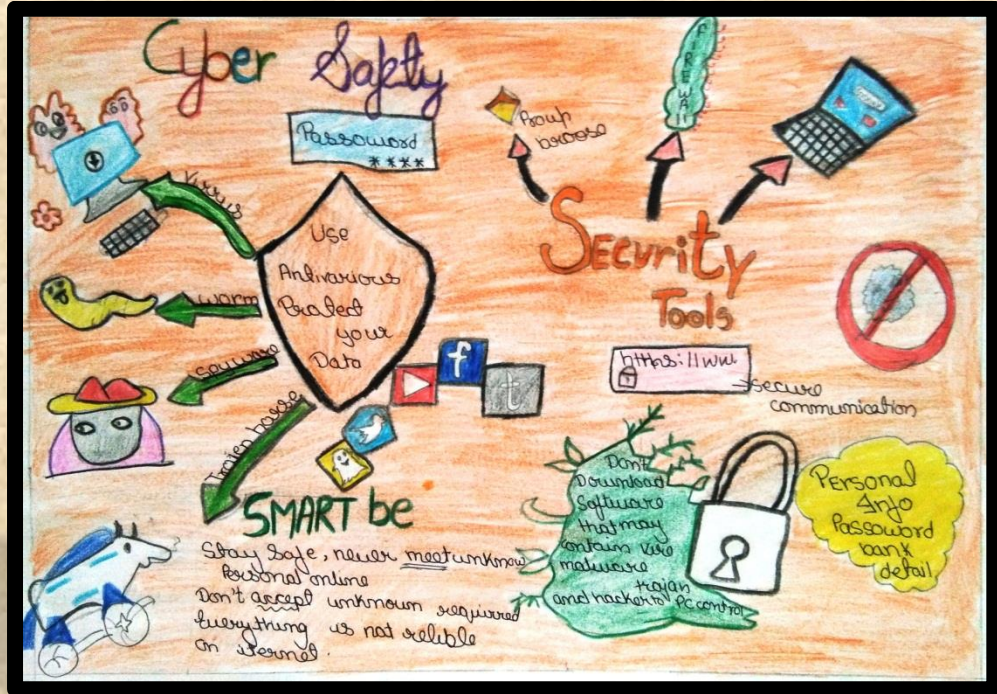 Cyber Safety
Passoword
****
FIREWAll
Security
Tools
Virus
warm
spyware
Trojen hasse
Use
Antivarious
Protect
your
Data
f
t
https://www
→secure
communication
SMART be
Stay Safe, never meet unknow
Personal online
Don't accept unknown requirred
Everything is not relible
on iternet.
Don't
Download
Software
that may
contain vire
malware
trojan
and hacker to PC control
Personal
Info
Passoword
bank
detail